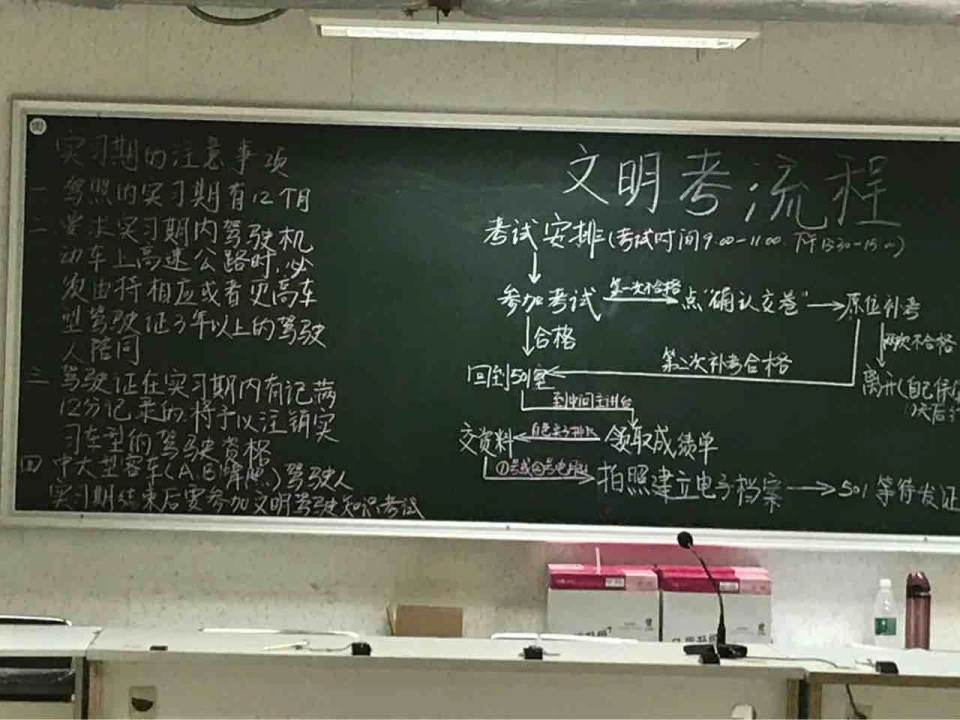 实习期的注意事项
一 驾照的实习期有12个月
二 尝试实习期内驾驶机
动车上高速公路时,必
须由持相应或者更高车
型驾驶证3年以上的驾驶
人陪同
三 驾驶证在实习期内有记满
12分记录的将予以注销实
习车型的驾驶资格
四 中大型客车(A,B牌照)驾驶人
实习期结束后要参加文明驾驶知识考试
文明考流程
考试安排(考试时间9:00-11:00 下午13:30-15:00)
参加考试
第一次不合格
点"确认交卷"
原位补考
合格
两次不合格
第二次补考合格
回到501室
离开(自己保
到中间主讲台
交资料
领取成绩单
拍照建立电子档案
501等待发证